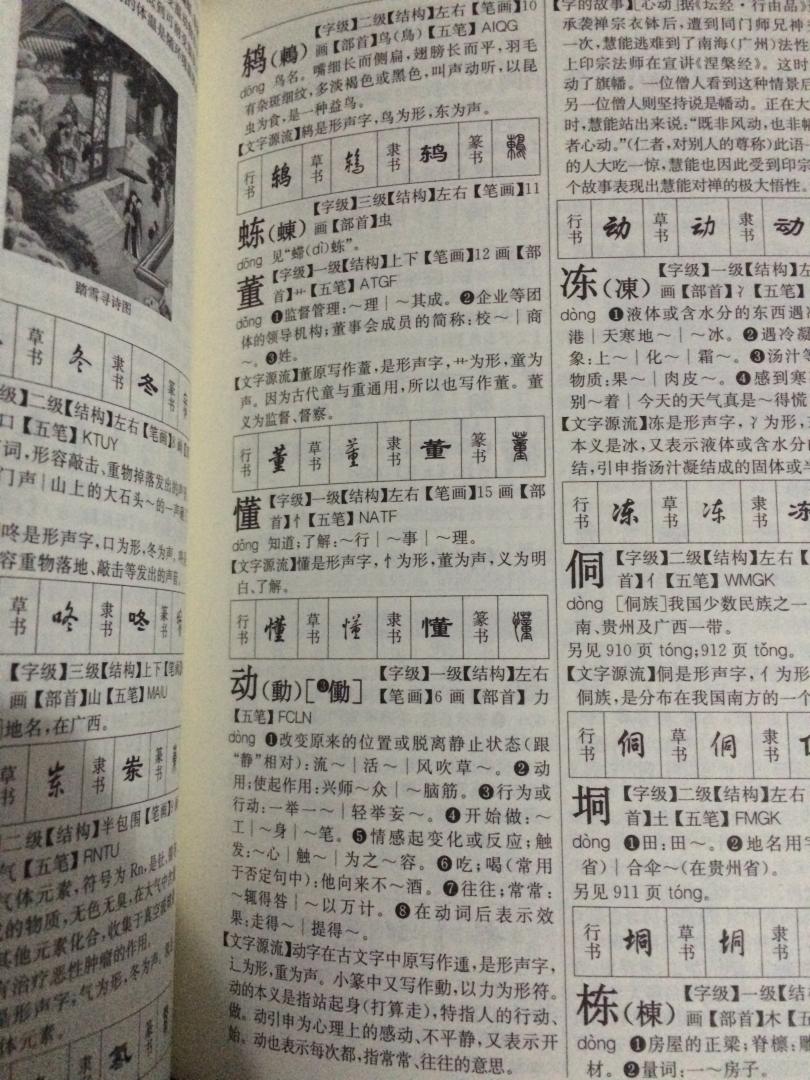 踏雪寻诗图
草书
冬
隶书
冬
篆
级】二级【结构】左右【笔画】
口【五笔】KTUY
词，形容敲击、重物掉落发出的声
门声｜山上的大石头～的一声
咚是形声字，口为形，冬为声，
容重物落地、敲击等发出的声音
草书
咚
隶书
咚
篆书
【字级】三级【结构】上下【笔
画【部首】山【五笔】MAIU
地名，在广西。
草书
隶书
篆书
二级【结构】半包围【笔
气【五笔】RNTU
气体元素，符号为Rn，是
的物质，无色无臭，在大气中
其他元素化合，收集于真空
有治疗恶性肿瘤的作用。
是形声字，气为形，冬为声，
体元素。
【字级】二级【结构】左右【笔画】10
鸫(鶇)画【部首】鸟(鳥)【五笔】AIQG
dōng 鸟名。嘴细长而侧扁，翅膀长而平，羽毛
有杂斑细纹，多淡褐色或黑色，叫声动听，以昆
虫为食，是一种益鸟。
【文字源流】鸫是形声字，鸟为形，东为声。
行书 鸫 草书 鸫 隶书 鸫 篆书 鶇
【字级】三级【结构】左右【笔画】11
蝀(蝀)画【部首】虫
dōng 见“䗖(dì)蝀”。
董 【字级】一级【结构】上下【笔画】12画【部
首】艹【五笔】ATGF
dǒng ❶监督管理：～理｜～其成。❷企业等团
体的领导机构；董事会成员的简称：校～｜商
～。❸姓。
【文字源流】董原写作蕫，是形声字，艹为形，童为
声。因为古代童与重通用，所以也写作董。董
义为监督、督察。
行书 董 草书 董 隶书 董 篆书 董
懂 【字级】一级【结构】左右【笔画】15画【部
首】忄【五笔】NATF
dǒng 知道；了解：～行｜～事｜～理。
【文字源流】懂是形声字，忄为形，董为声，义为明
白、了解。
行书 懂 草书 懂 隶书 懂 篆书 懂
动(動)[❸働] 【字级】一级【结构】左右
【笔画】6画【部首】力
【五笔】FCLN
dòng ❶改变原来的位置或脱离静止状态(跟
“静”相对)：流～｜活～｜风吹草～。❷动
用；使起作用：兴师～众｜～脑筋。❸行为或
行动：一举一～｜轻举妄～。❹开始做：～
工｜～身｜～笔。❺情感起变化或反应；触
发：～心｜触～｜为之～容。❻吃；喝(常用
于否定句中)：他向来不～酒。❼往往；常常：
～辄得咎｜～以万计。❽在动词后表示效
果：走得～｜提得～。
【文字源流】动字在古文字中原写作𨔝，是形声字，
辶为形，重为声。小篆中又写作動，以力为形符。
动的本义是指站起身(打算走)，特指人的行动、
做。动引申为心理上的感动、不平静，又表示开
始。动也表示每次都，指常常、往往的意思。
【字的故事】[心动]据《坛经·行由品》
承袭禅宗衣钵后，遭到同门师兄神
一次，慧能逃难到了南海(广州)法性
上印宗法师在宣讲《涅槃经》。这时
动了旗幡。一位僧人看到这种情景后
另一位僧人则坚持说是幡动。正在大
时，慧能站出来说：“既非风动，也非幡
者心动。”(仁者，对别人的尊称)此语一
的人大吃一惊，慧能也因此受到印宗
个故事表现出慧能对禅的极大悟性。
行书 动 草书 动 隶书 动
【字级】一级【结构】左
冻(凍)画【部首】冫【五笔】
dòng ❶液体或含水分的东西遇冷
港｜天寒地～｜～冰。❷遇冷凝
象：上～｜化～｜霜～。❸汤汁等
物质：果～｜肉皮～。❹感到寒
别～着｜今天的天气真是～得慌
【文字源流】冻是形声字，冫为形，
本义是冰，又表示液体或含水分
结，引申指汤汁凝结成的固体或半
行书 冻 草书 冻 隶书 冻
侗 【字级】二级【结构】左右【
首】亻【五笔】WMGK
dòng [侗族]我国少数民族之一
南、贵州及广西一带。
另见910页 tóng；912页 tǒng。
【文字源流】侗是形声字，亻为形
侗族，是分布在我国南方的一个
行书 侗 草书 侗 隶书
垌 【字级】二级【结构】左右【
首】土【五笔】FMGK
dòng ❶田：田～。❷地名用
省)｜合伞～(在贵州省)。
另见911页 tóng。
行书 垌 草书 垌 隶书
【字级】一级【结
栋(棟)画【部首】木【五
dòng ❶房屋的正梁；脊檩：雕
材。❷量词：一～房子。